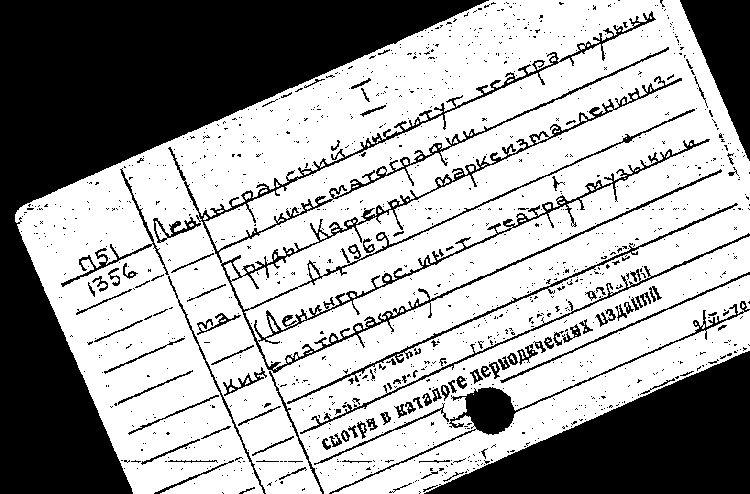 I
Ленинградский институт театра, музыки
и кинематографии.
П51
1356
Труды Кафедры марксизма-лениниз-
ма. Л., 1969-
(Ленингр. гос. ин-т театра, музыки и
кинематографии)
Перечень
издания
смотри в каталоге периодических изданий